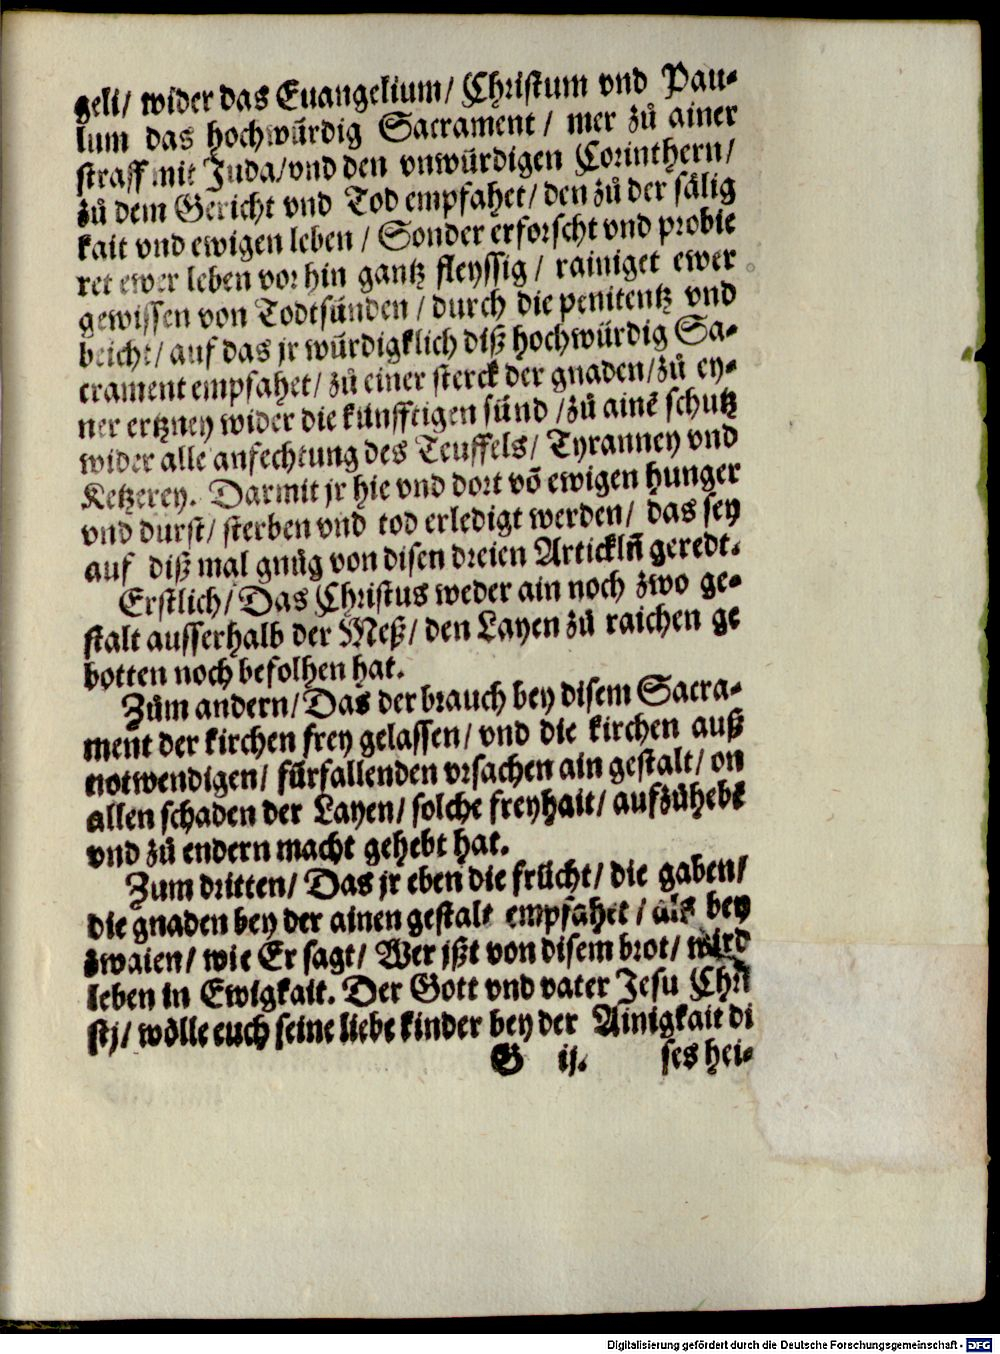 geli/ wider das Euangelium/ Christum vnd Pau⸗
lum das hochwürdig Sacrament/ mer zů ainer
straff mit Juda/vnd den vnwürdigen Corinthern/
zů dem Gericht vnd Tod empfahet/ den zů der sälig
kait vnd ewigen leben/ Sonder erforscht vnd probie
ret ewer leben vorhin gantz fleyssig/ rainiget ewer
gewissen von Todtsünden/ durch die penitentz vnd
beicht/ auf das jr würdigklich diß hochwürdig Sa⸗
crament empfahet/ zů einer sterck der gnaden/zů ey⸗
ner ertzney wider die künfftigen sünd/zů ainẽ schutz
wider alle anfechtung des Teuffels/ Tyranney vnd
Ketzerey. Darmit jr hie vnd dort võ ewigen hunger
vnd durst/ sterben vnd tod erledigt werden/ das sey
auf diß mal gnůg von disen dreien Articklñ geredt.
Erstlich/ Das Christus weder ain noch zwo ge⸗
stalt ausserhalb der Meß/ den Layen zů raichen ge
botten noch befolhen hat.
Zům andern/ Das der brauch bey disem Sacra⸗
ment der kirchen frey gelassen/ vnd die kirchen auß
notwendigen/ fürfallenden vrsachen ain gestalt/ on
allen schaden der Layen/ solche freyhait/ aufzůhebẽ
vnd zů endern macht gehebt hat.
Zum dritten/ Das jr eben die frücht/ die gaben/
die gnaden bey der ainen gestalt empfahet/ als bey
zwaien/ wie Er sagt/ Wer ißt von disem brot/ wird
leben in Ewigkait. Der Gott vnd vater Jesu Chri
stj/ wölle euch seine liebe kinder bey der Ainigkait di
G ij. ses hei⸗
Digitalisierung gefördert durch die Deutsche Forschungsgemeinschaft - DFG